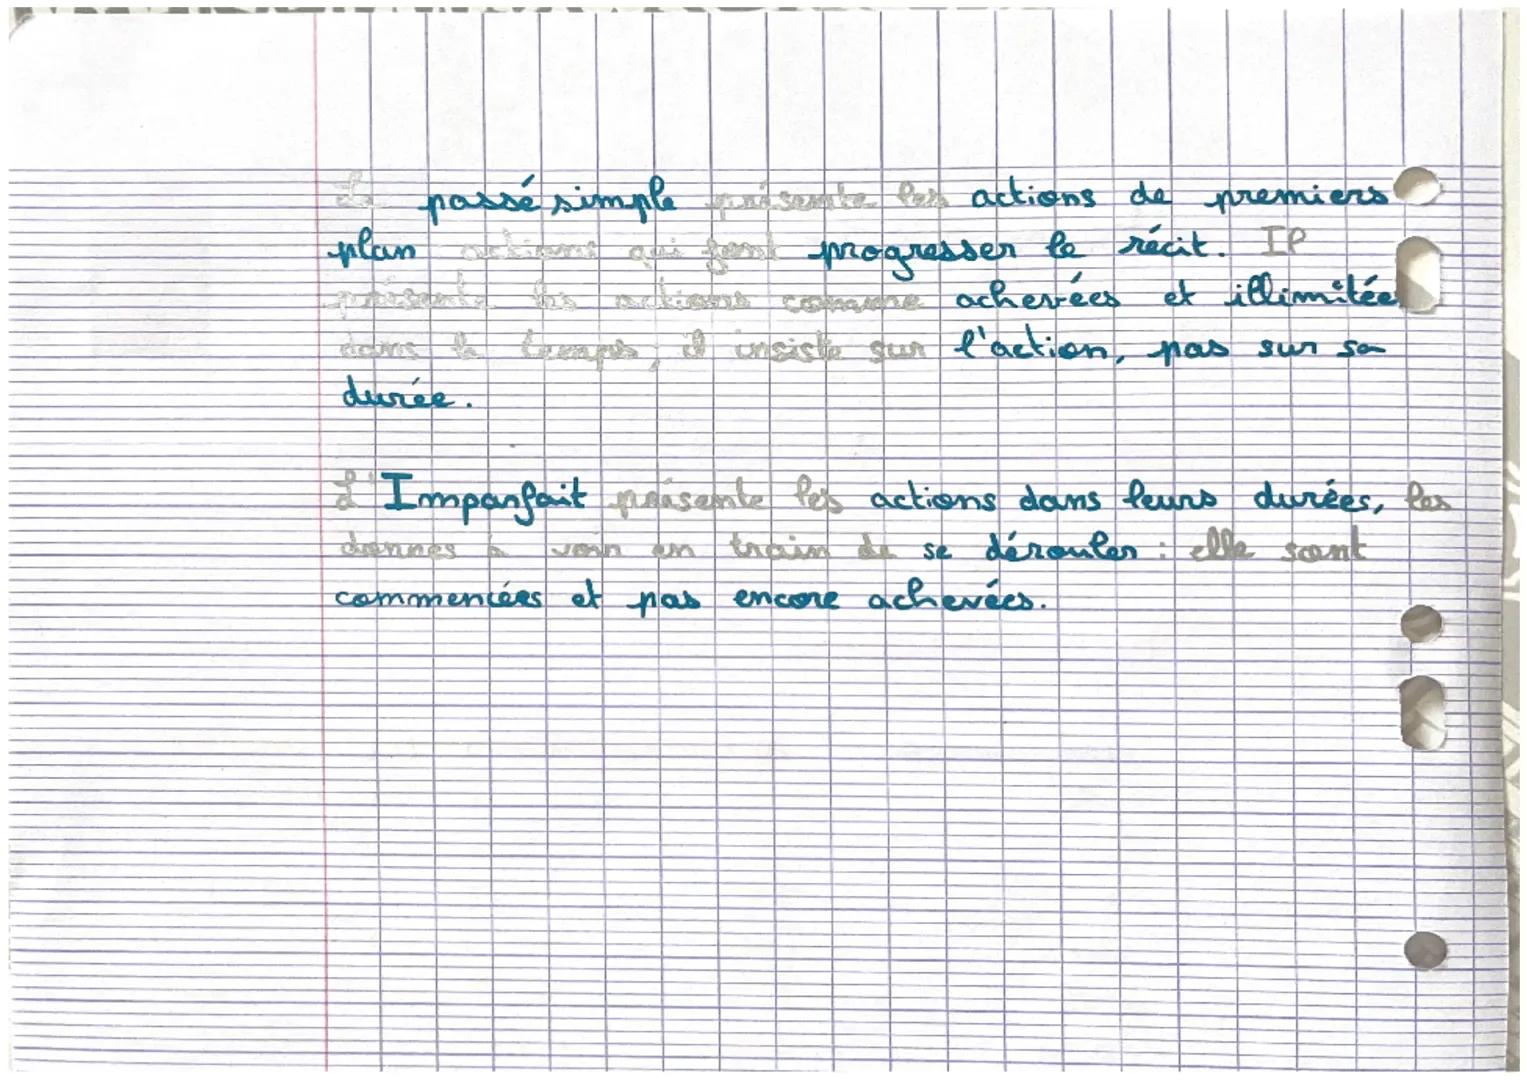 Le passé simple présente les actions de premiers
plan actions qui font progresser le récit. Il
présente les actions comme achevées et illimitée
dans le temps, il insiste sur l'action, pas sur sa
durée.
L'Imparfait présente les actions dans leurs durées, les
donnes à voir en train de se dérouler : elle sont
commencées et pas encore achevées.